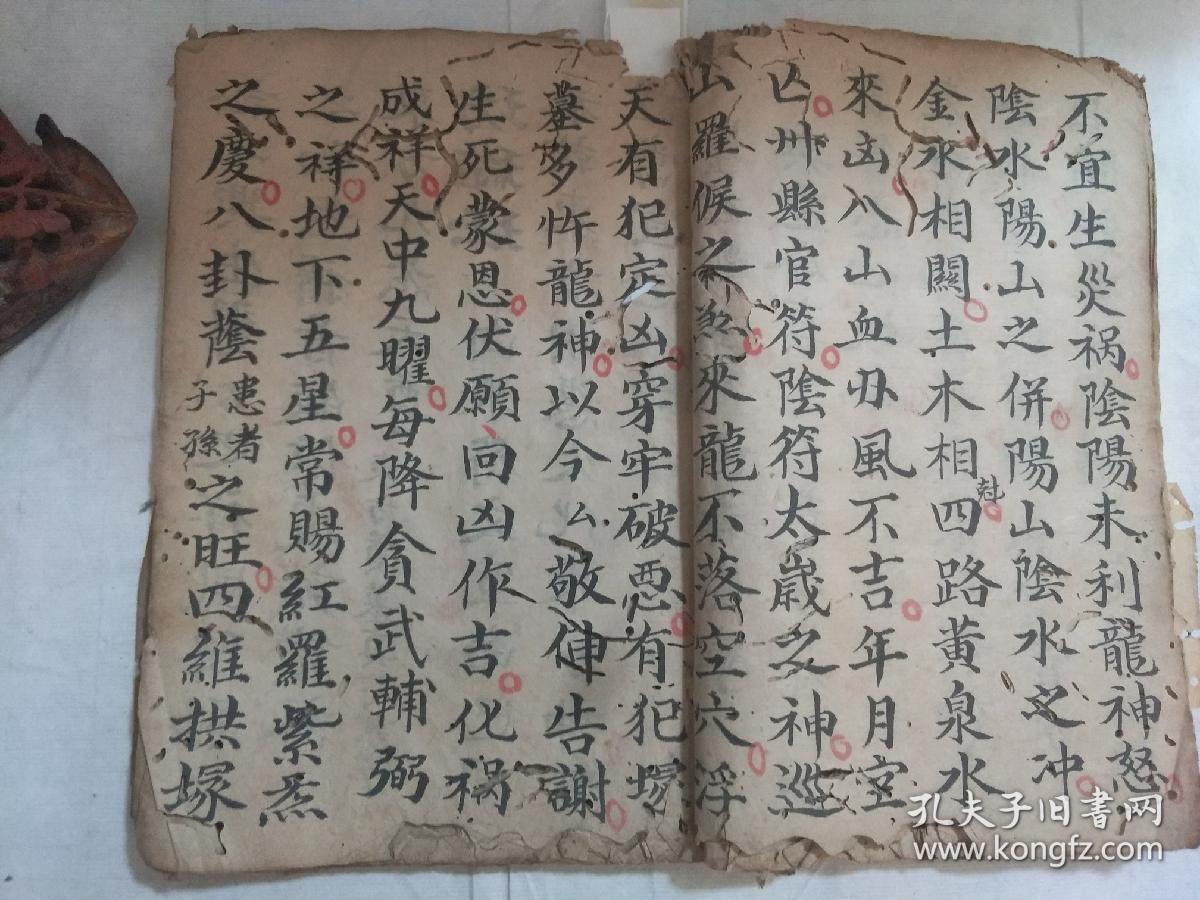 不宜生災祸陰陽未利龍神怒
陰水陽山之併陽山陰水之冲
金水相關土木相尅四路黃泉水
來凶八山血刃風不吉年月空
亡州縣官符陰符太歲之神巡
山羅候之神煞來龍不落空穴浮
天有犯定凶穿牢破恶有犯塚
墓多忤龍神以今厶敬伸告謝
生死蒙恩伏願回凶作吉化祸
成祥天中九曜每降貪武輔弼
之祥地下五星常賜紅羅紫炁
之慶八卦蔭患者子孫之旺四維拱塚
孔夫子旧书网
www.kongfz.com